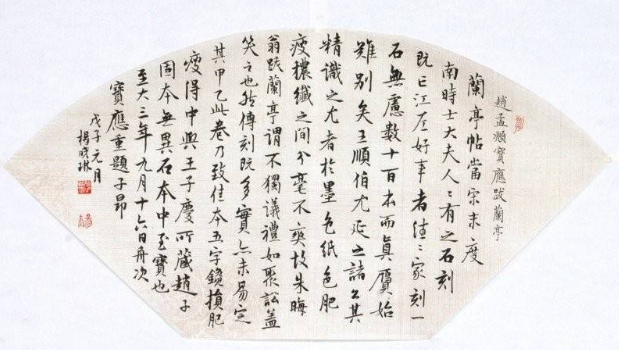 趙孟頫寶應跋蘭亭
蘭亭帖當宋未度
南時士大夫人〻有之石刻
既亡江左好事者往〻家刻一
石無慮數十百本而真贗始
難別矣王順伯尤延之諸公其
精識之尤者於墨色紙色肥
瘦穠纖之間分毫不爽故朱晦
翁跋蘭亭謂不獨議禮如聚訟蓋
笑之也然傳刻既多實亦未易定
其甲乙此卷乃致佳本五字鑱損肥
瘦得中與王子慶所藏趙子
固本無異石本中至寶也
至大三年九月十六日舟次
寶應重題子昂
戊子元月
楊曉琳